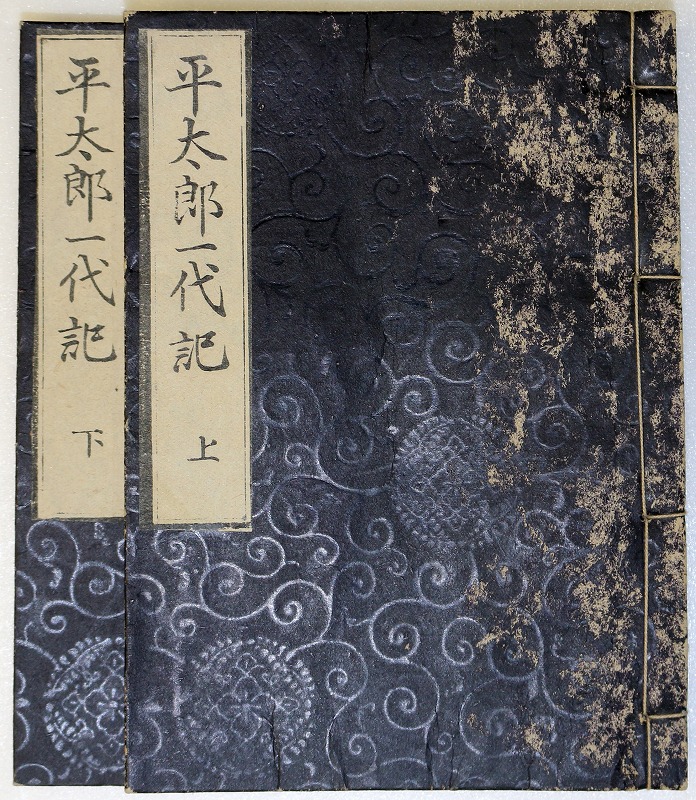 平太郎一代記 上
平太郎一代記 下